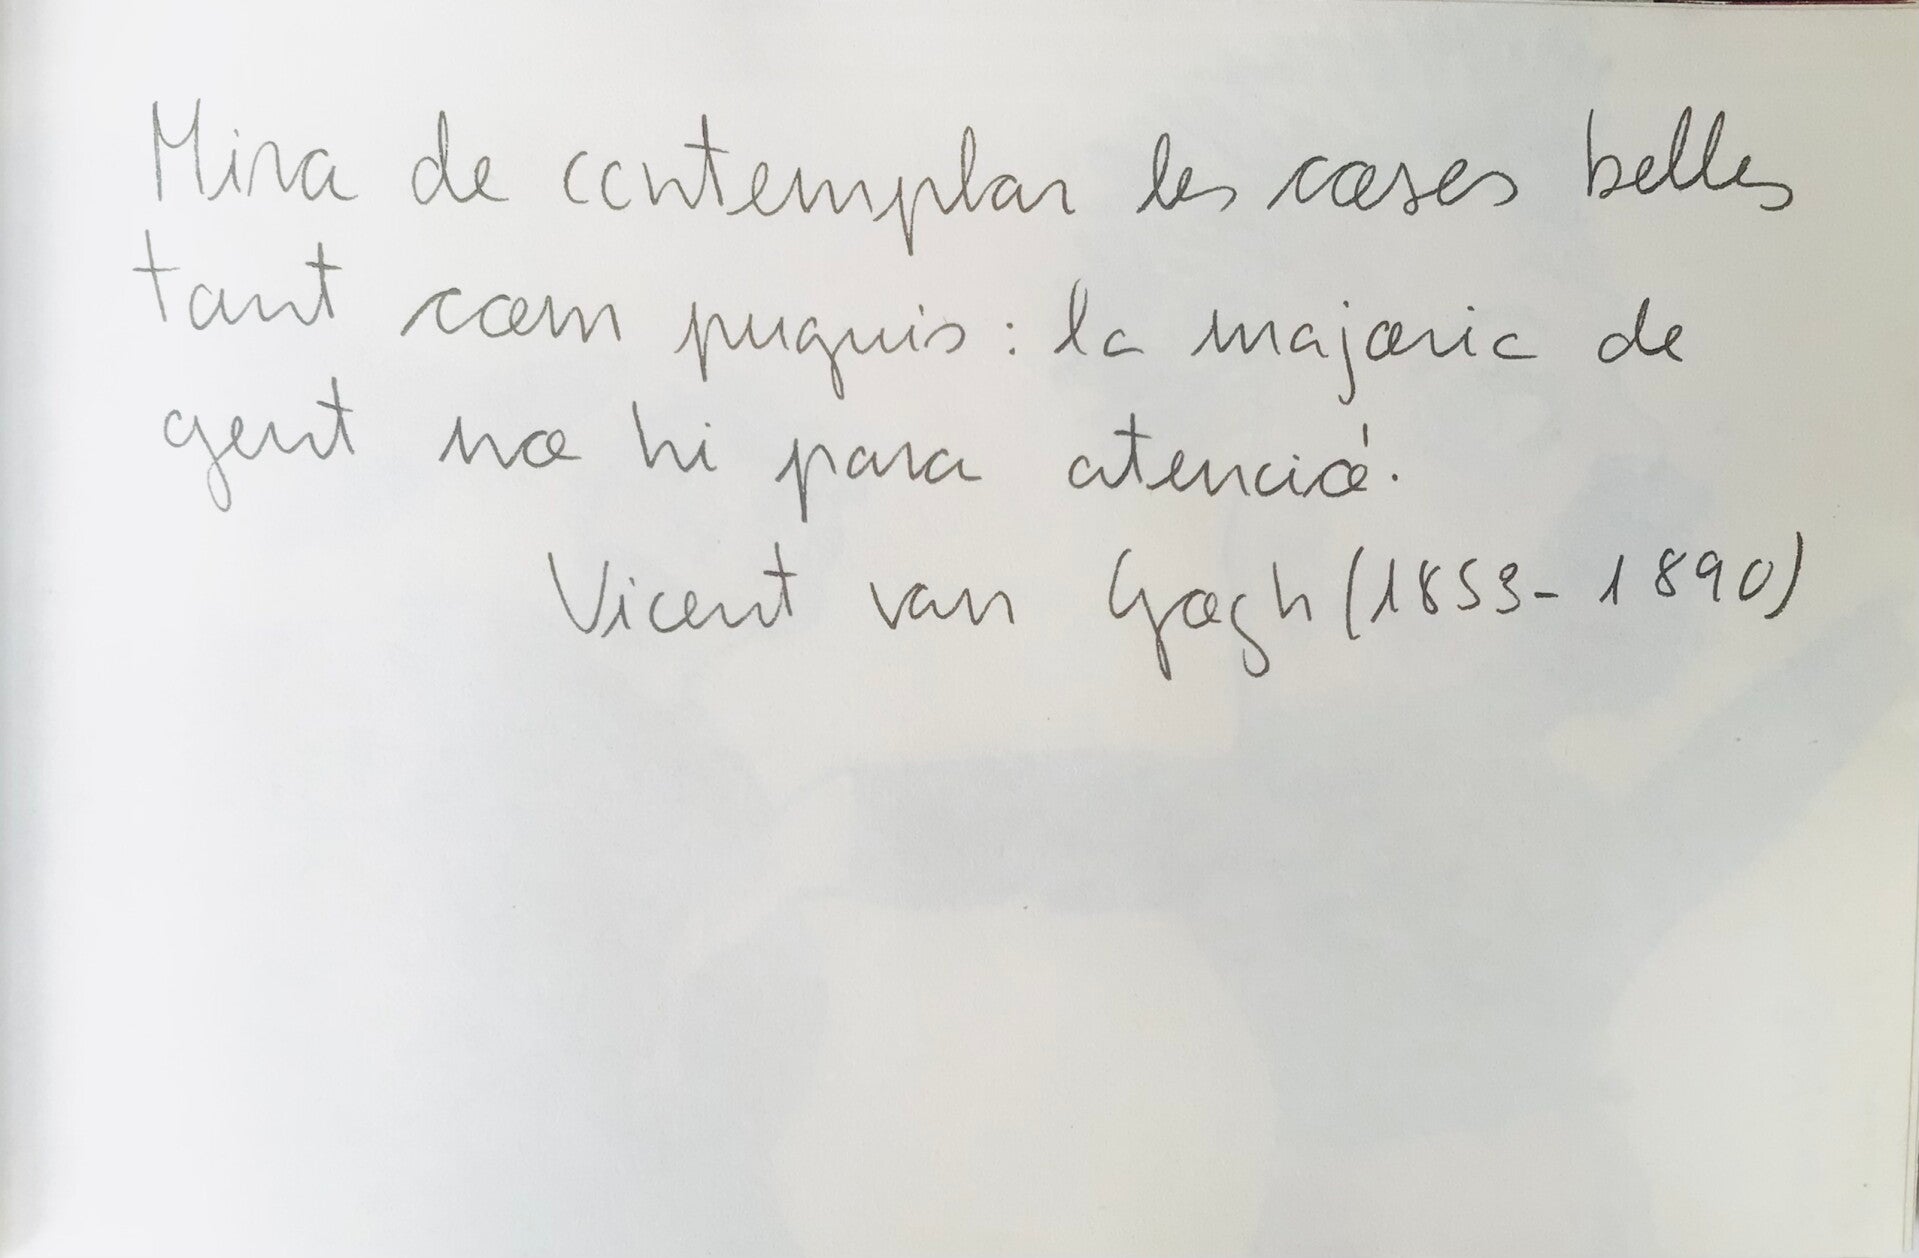 Mira de contemplar les coses belles
tant com puguis: la majoria de
gent no hi para atenció.
Vicent van Gogh (1853-1890)